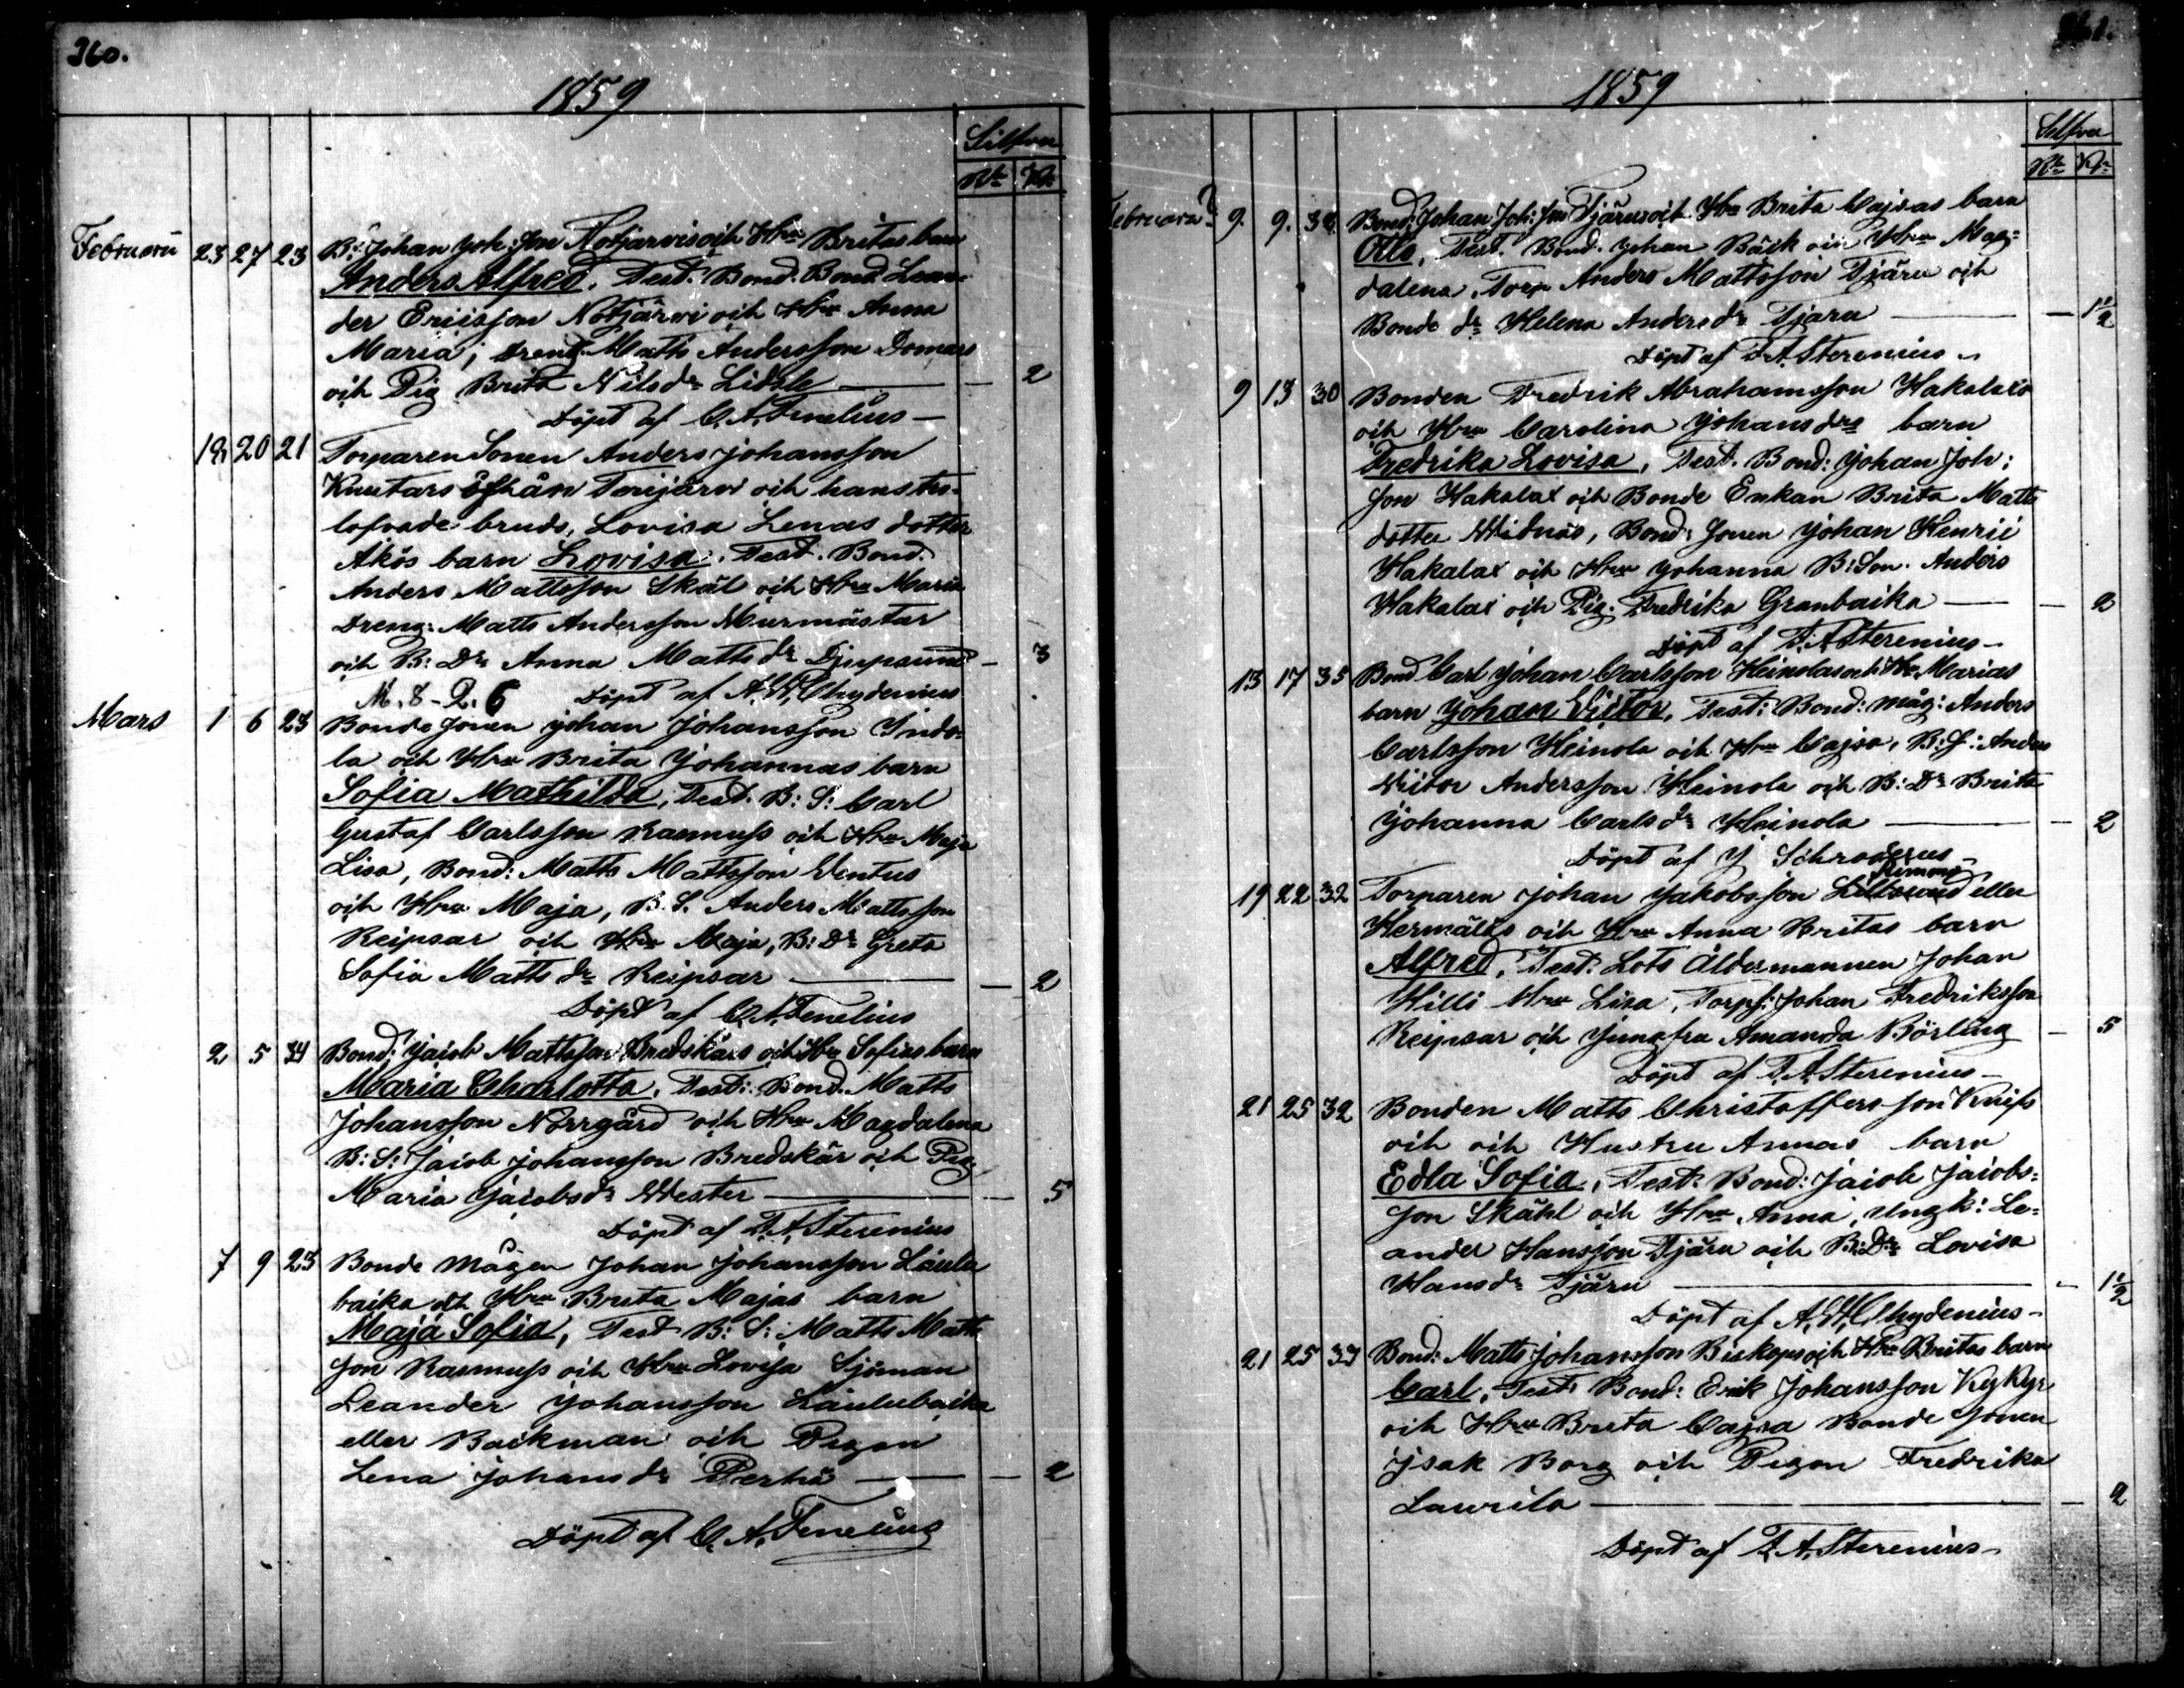 360.
1859
Silfver
Rb. Kp.
Februari 23 27 23 B: Johan Joh: Son Notjärvis och Hru Britas barn
Anders Alfred. Test: Bond. Bond. Lean-
der Ericsson Notjärvi och Hru Anna
Maria; Dreng. Matts Andersson Domars
och Pig Brita Nilsdr Lidsle — — 2
Döpt af C. A. Fenelius —
18 20 21 Torparen Sonen Anders Johansson
Knutars ifrån Terijärvi och hans tro-
lofvade bruds, Lovisa Lenas dotter
Åkös barn Lovisa. Test. Bond.
Anders Mattsson Skål och Hru Maria
Dreng: Matts Andersson Murmästar
och B: Dr Anna Mattsdr Djupsund — 3
M. 8 - Q. 6 Döpt af A. W. Chydenius
Mars 1 6 23 Bonde Sonen Johan Johansson Indo-
la och Hru Brita Johannas barn
Sofia Mathilda, Test. B: S: Carl
Gustaf Carlsson Rasmuss och Hru Maja
Lisa, Bond: Matts Mattsson Ventus
och Hru Maja, B. S. Anders Mattsson
Reipsar och Hru Maja, B: Dr Greta
Sofia Mattsdr Reipsar — — 2
Döpt af C. A. Fenelius
2 5 34 Bond: Jacob Mattsson Bredskärs och Hru Sofias barn
Maria Charlotta. Test: Bond. Matts
Johansson Norrgård och Hru Magdalena
B: S: Jacob Johansson Bredskär och Pig.
Maria Jacobsdr Wester — — 5
Döpt af F. A. Sterenius
7 9 23 Bonde Mågen Johan Johansson Laulu
baika och Hru Brita Majas barn
Maja Sofia, Test B: S: Matts Matts
son Rasmuss och Hru Lovisa Sjöman
Leander Johansson Laulubaika
eller Backman och Pigan
Lena Johansdr Perhö — — 2
Döpt af C. A. Fenelius
361.
1859
Silfver
Rb. Kp.
Februari 9. 9. Bond: Johan Joh: Son Tjärus och Hru Brita Cajsas barn
Otto, Test. Bond. Johan Bäck och Hru Mag-
dalena, Torp Anders Mattsson Tjäru och
Bonde dr Helena Andersdr Tjäru — — 1 1/2
Döpt af F. A. Sterenius —
9 13 30 Bonden Fredrik Abrahamsson Hakalaxs
och Hru Carolina Johansdrs barn
Fredrika Lovisa, Test. Bond: Johan Joh:
Son Hakalax och Bonde Enkan Brita Matts
dotter Widnäs, Bond: Sonen Johan Henric
Hakalax och Hru Johanna B: Son. Anders
Hakalax och Pig. Fredrika Granbaika — — 2
Döpt af F. A. Sterenius —
13 17 35 Bond Carl Johan Carlsson Heinolas och Hru Marias
barn Johan Victor, Test: Bond: måg: Anders
Carlsson Heinola och Hru Cajsa, B: S: Anders
Victor Andersson Heinola och B: Dr Brita
Johanna Carlsdr Heinola — — 2
Döpt af J Schroderus —
19 22 32 Torparen Johan Jakobsson eller
Hermäläs och Hru Anna Britas barn
Alfred, Test: Lots Åldermannen Johan
Hilli Hru Lisa, Torps: Johan Fredriksson
Reipsar och Jungfru Amanda Börling — 5
Döpt af F. A. Sterenius —
21 25 32 Bonden Matts Christoffers son Knifs
och och Hustru Annas barn
Edla Sofia, Test: Bond: Jacob Jacobs-
son Skåhl och Hru Anna, Ungk: Le-
ander Hansson Tjäru och B: Dr Lovisa
Hansdr Tjäru — — 1 1/2
Döpt af A. W. Chydenius —
21 25 33 Bond: Matts Johansson Biskops och Hru Britas barn
Carl, Test: Bond: Erik Johansson Kykyr
och Hru Brita Cajsa Bonde Sonen
Isak Borg och Pigan Fredrika
Laurila — — 2
Döpt af F. A. Sterenius —